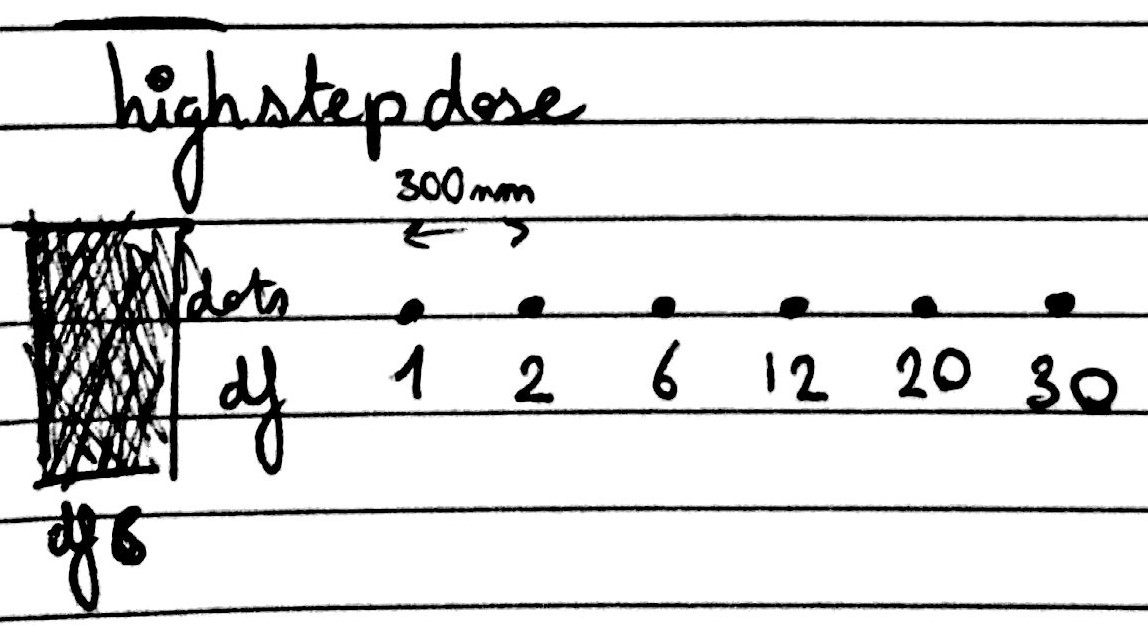 high step dose
300nm
dots
df 1 2 6 12 20 30
df 6